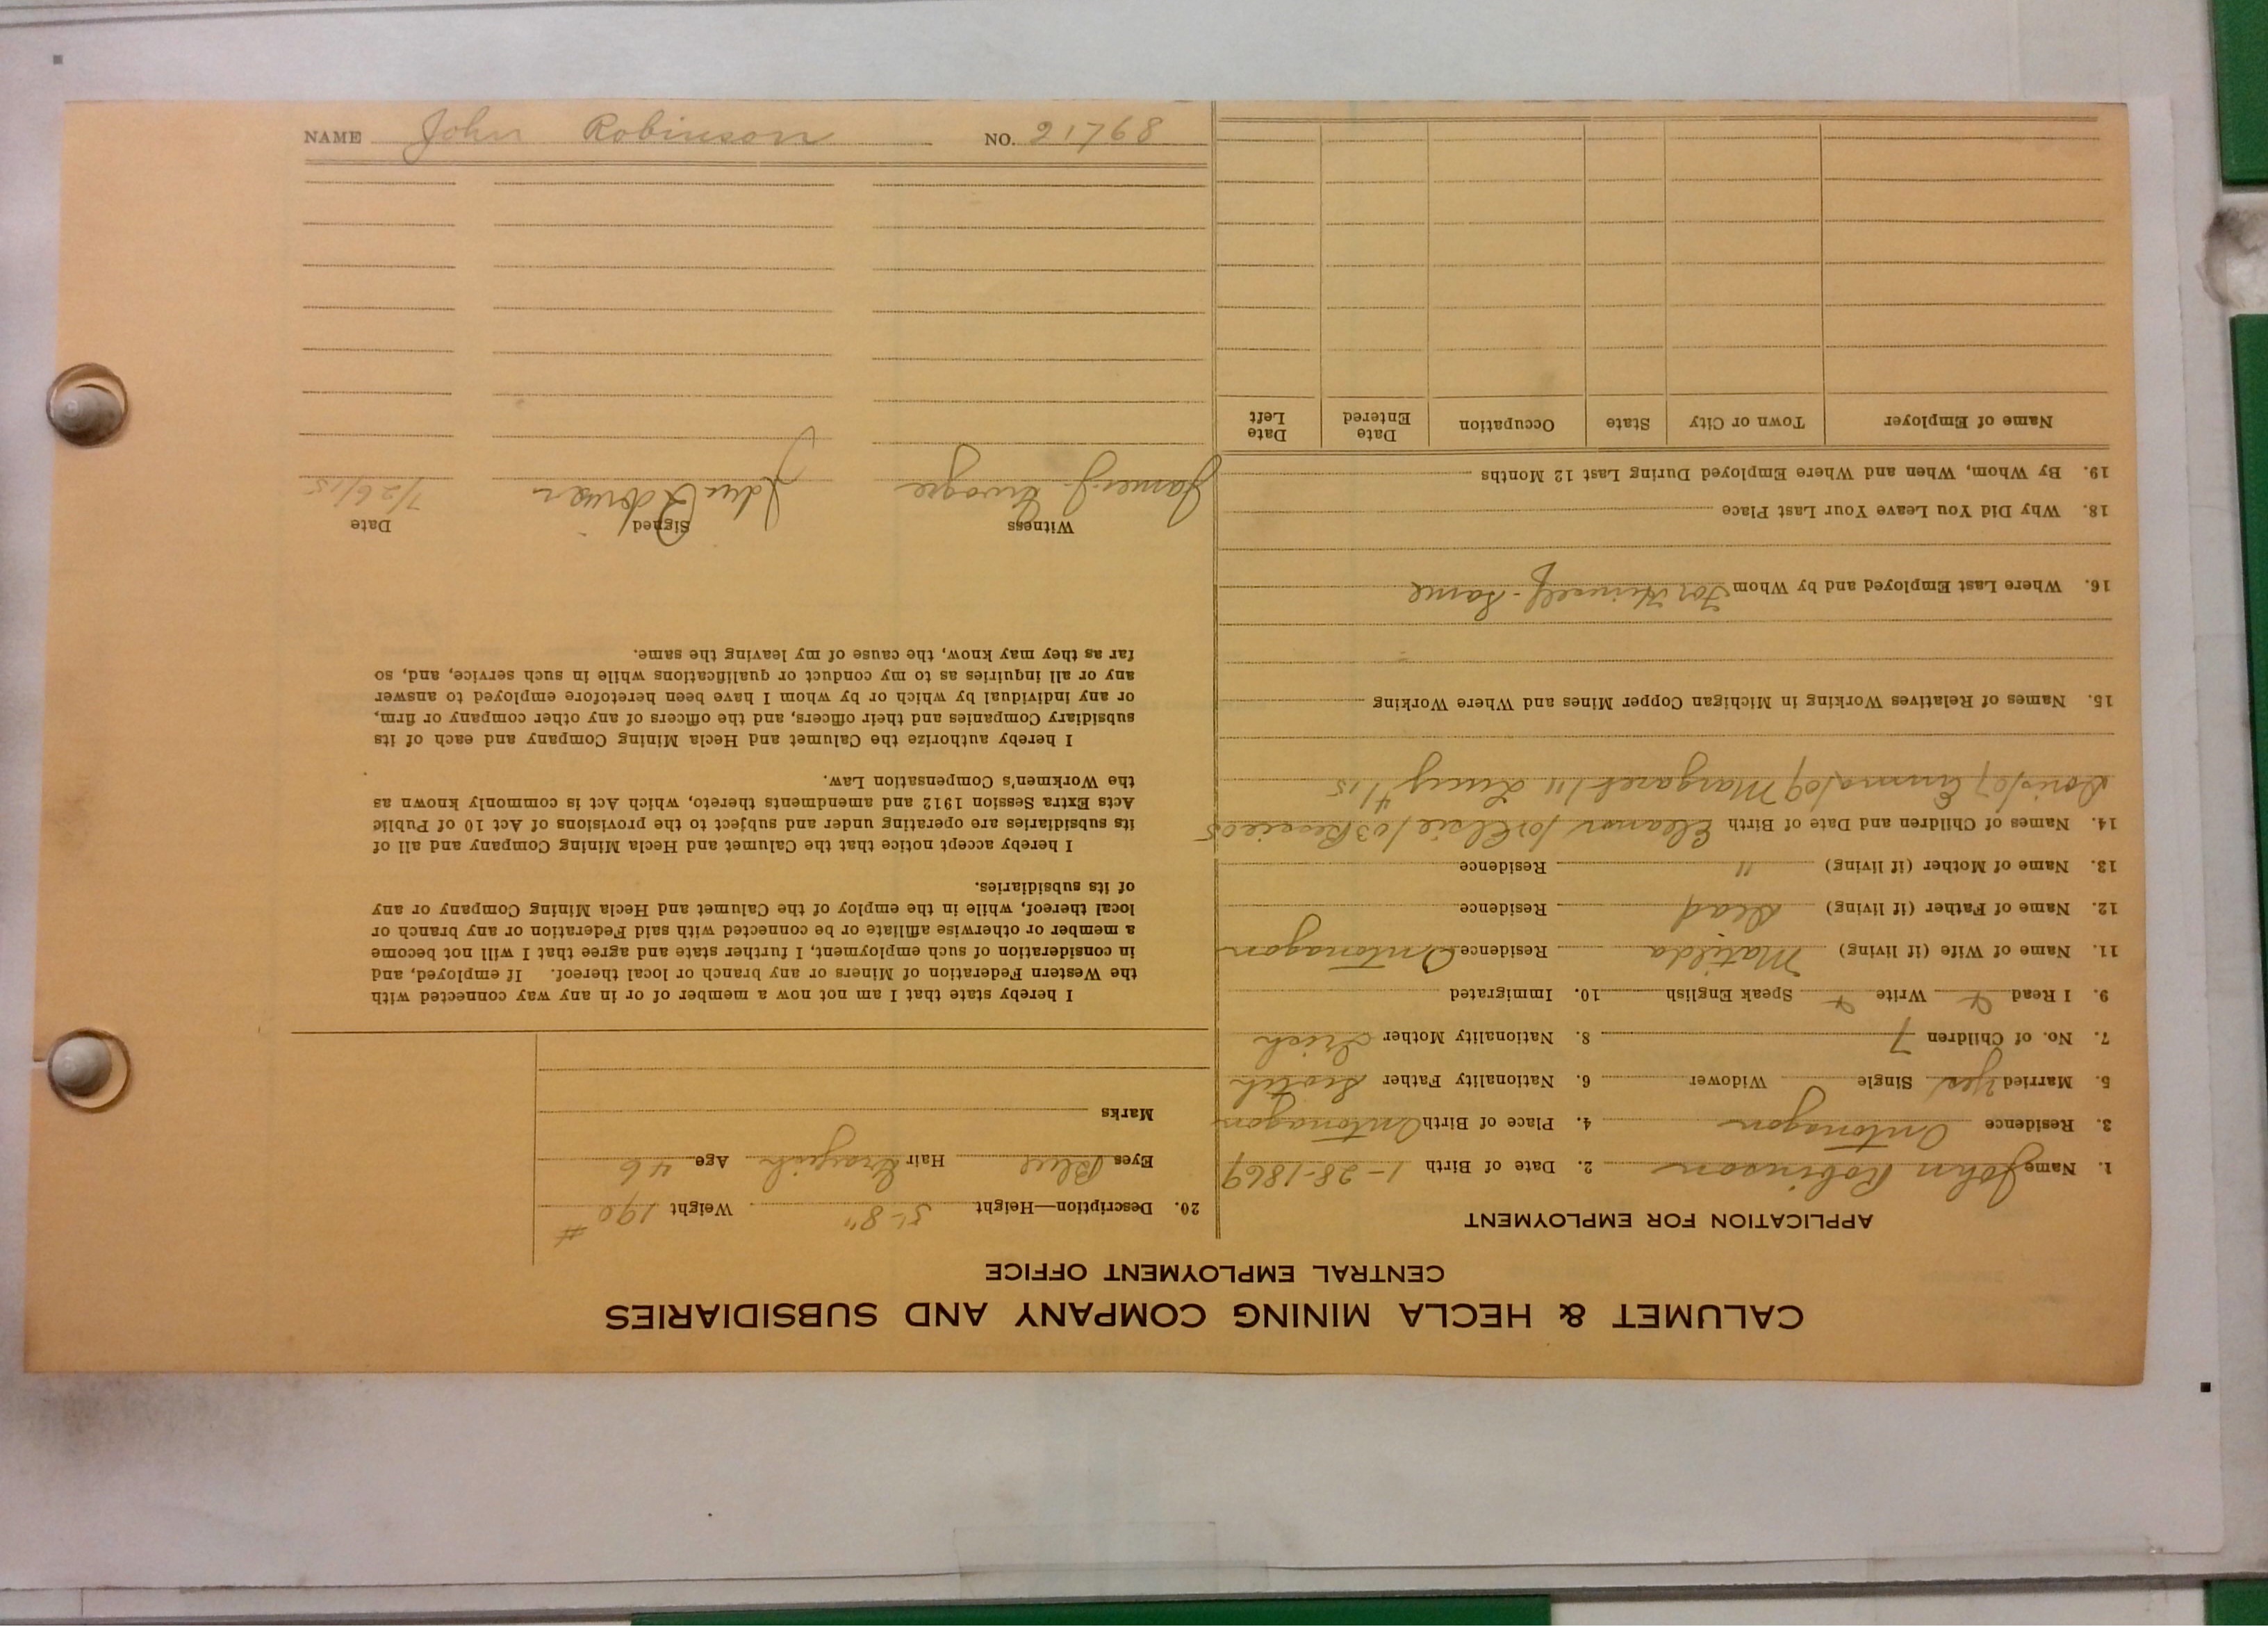 CALUMET & HECLA MINING COMPANY AND SUBSIDIARIES
CENTRAL EMPLOYMENT OFFICE
APPLICATION FOR EMPLOYMENT
1. Name John Robinson 2. Date of Birth 1-28-1869
3. Residence Ontonagon 4. Place of Birth Ontonagon
5. Married Yes Single Widower 6. Nationality Father Scotch
7. No. of Children 7 8. Nationality Mother Irish
9. I Read Write Speak English 10. Immigrated
11. Name of Wife (if living) Matilda Residence Ontonagon
12. Name of Father (if living) Dead Residence
13. Name of Mother (if living) " Residence
14. Names of Children and Date of Birth Eleanor Elsie/03 Bessie 05
Doris/07 Emma/09 Margaret/11 Lucy 4/15
15. Names of Relatives Working in Michigan Copper Mines and Where Working
16. Where Last Employed and by Whom For Himself-Same
18. Why Did You Leave Your Last Place
19. By Whom, When and Where Employed During Last 12 Months
Name of Employer Town or City State Occupation Date Entered Date Left
20. Description—Height 5'-8" Weight 190 #
Eyes Blue Hair Grayish Age 46
Marks
I hereby state that I am not now a member of or in any way connected with
the Western Federation of Miners or any branch or local thereof. If employed, and
in consideration of such employment, I further state and agree that I will not become
a member or otherwise affiliate or be connected with said Federation or any branch or
local thereof, while in the employ of the Calumet and Hecla Mining Company or any
of its subsidiaries.
I hereby accept notice that the Calumet and Hecla Mining Company and all of
its subsidiaries are operating under and subject to the provisions of Act 10 of Public
Acts Extra Session 1912 and amendments thereto, which Act is commonly known as
the Workmen's Compensation Law.
I hereby authorize the Calumet and Hecla Mining Company and each of its
subsidiary Companies and their officers, and the officers of any other company or firm,
or any individual by which or by whom I have been heretofore employed to answer
any or all inquiries as to my conduct or qualifications while in such service, and, so
far as they may know, the cause of my leaving the same.
Witness Signed Date
James John Robinson 7/26/15
NAME John Robinson NO. 21768